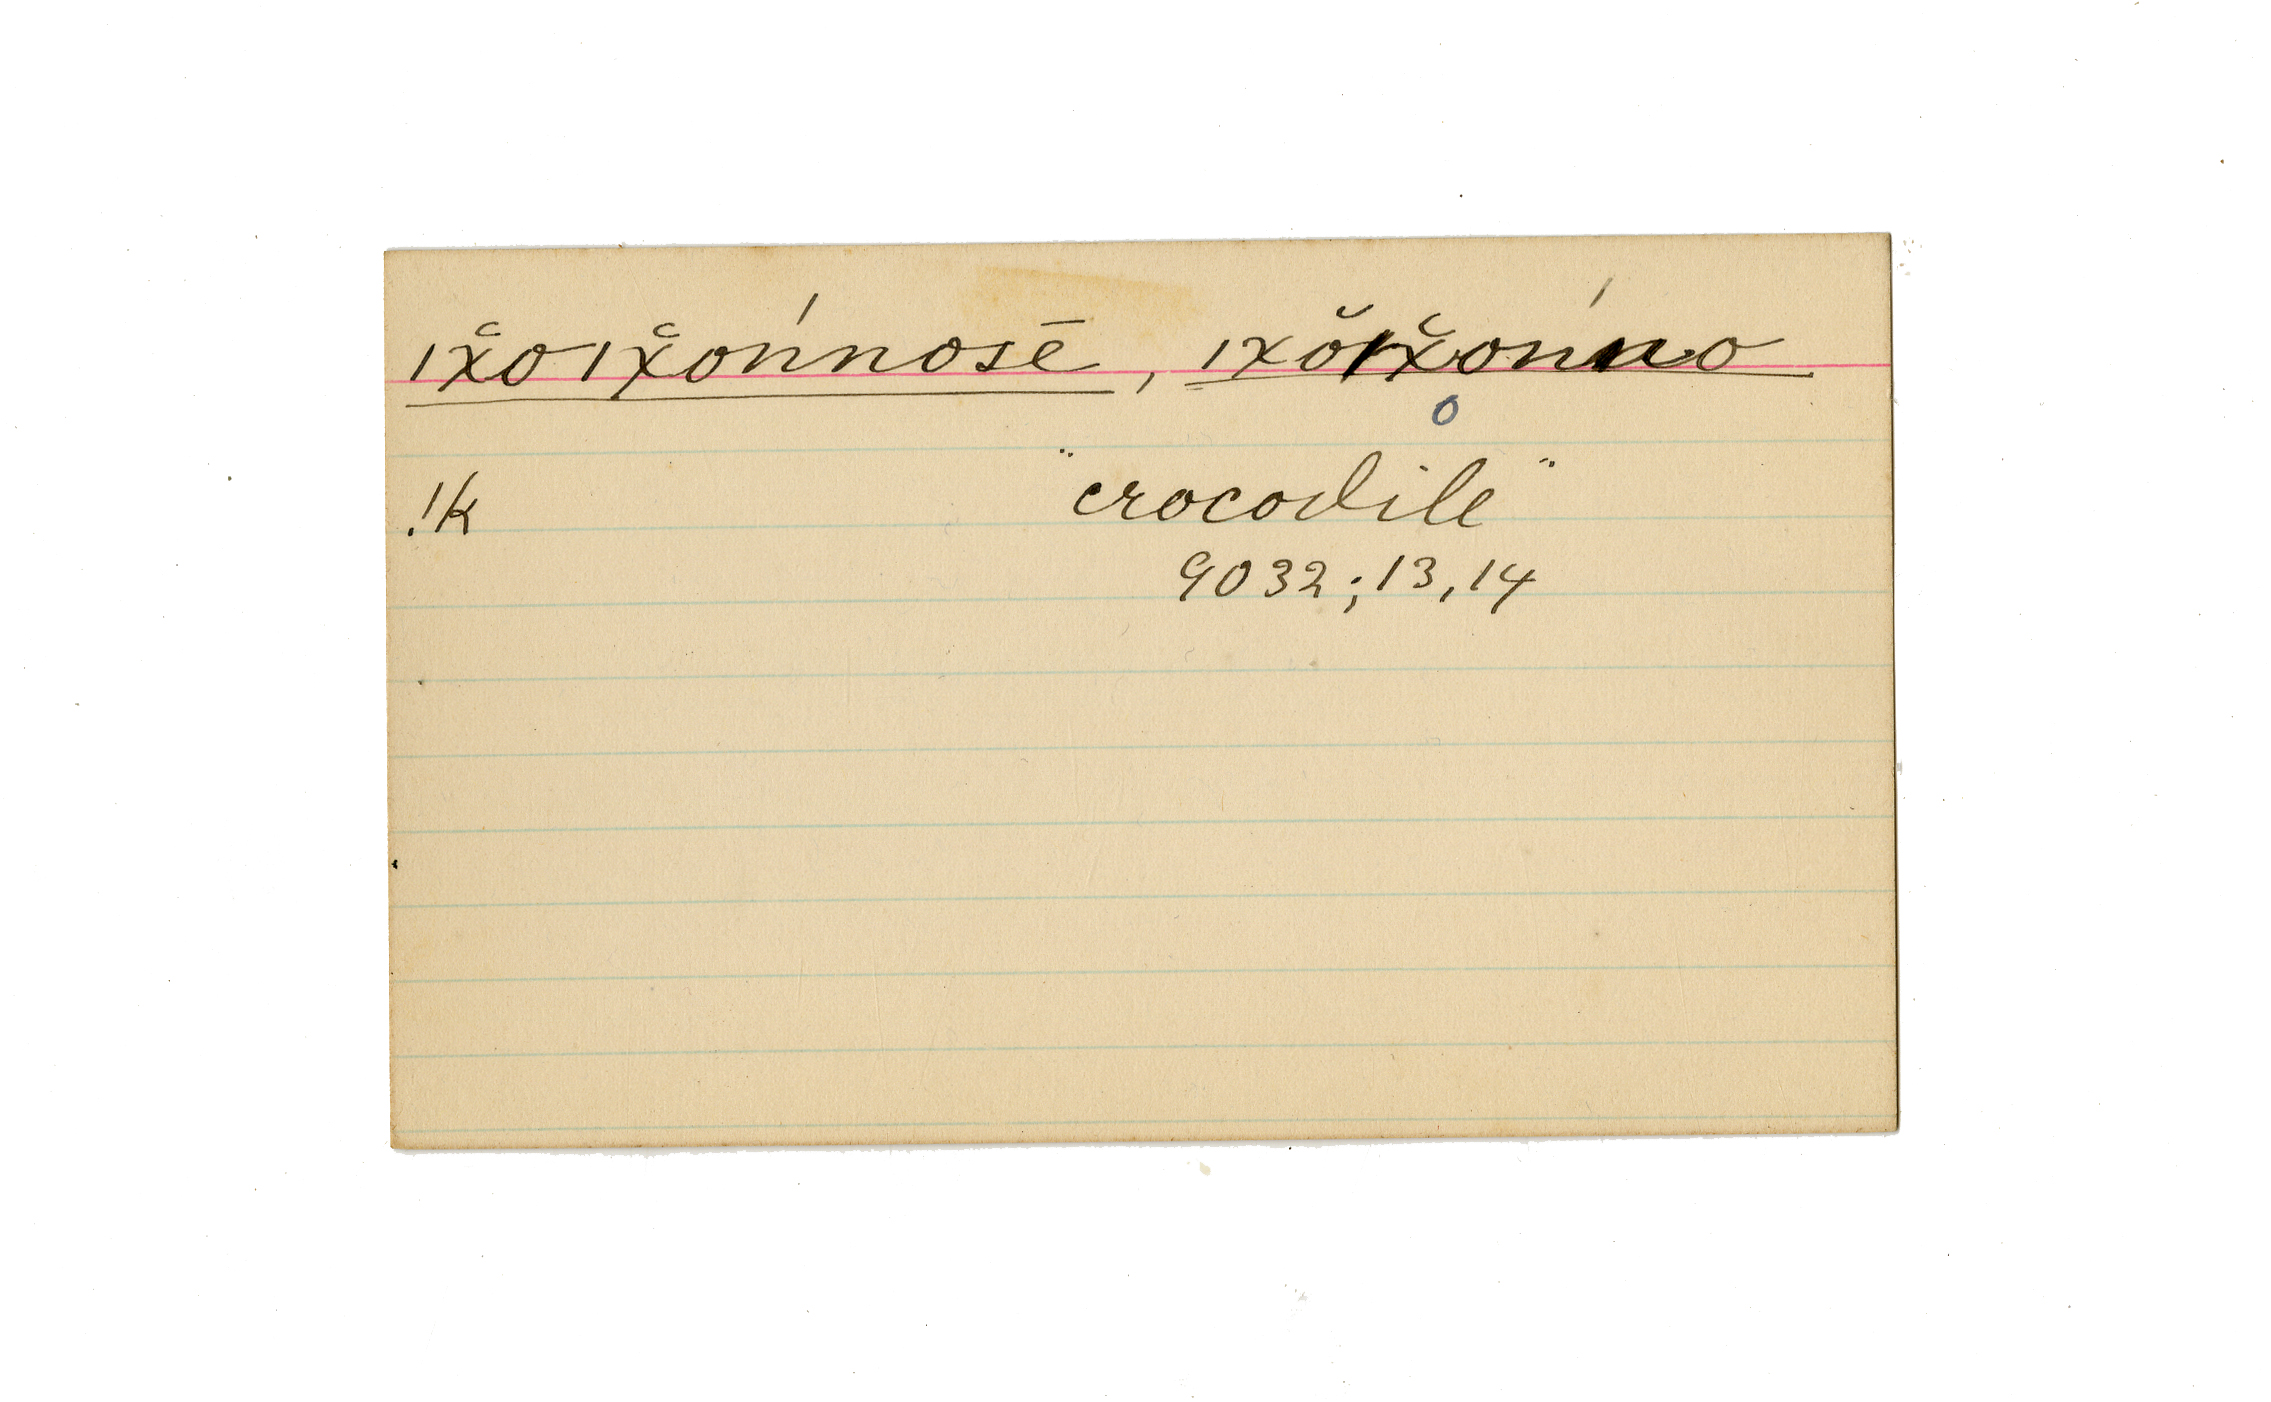 ıx̆oıx̆ońnosē, ıxŏıx̆ońno
o
!k "crocodile"
9032; 13, 14